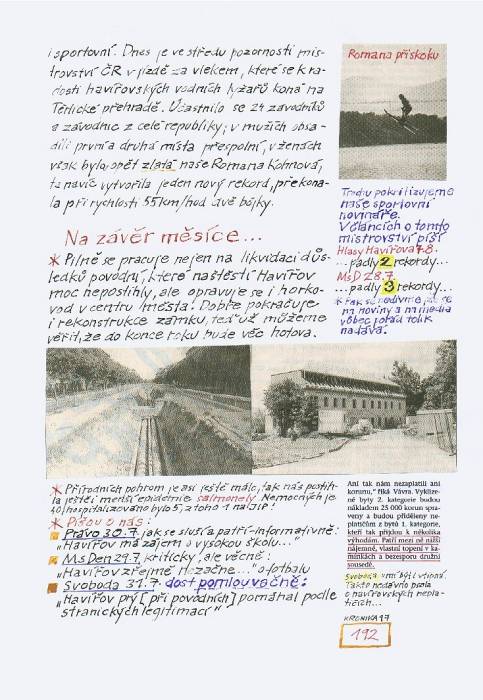 i sportovní. Dnes je ve středu pozornosti mis-
trovství ČR v jízdě za vlekem, které se k ra-
dosti havířovských vodních lyžařů koná na
Těrlické přehradě. Účastnilo se 24 závodníků
a závodnic z celé republiky; v mužích obsa-
dili první a druhá místa přespolní, v ženách
však byla, opět zlatá naše Romana Kohnová,
ta navíc vytvořila jeden nový rekord, překona-
la při rychlosti 55km/hod dvě bójky.
Romana při skoku
Tradiu pokrl izujeme
naše sportovní
novináře.
V článcích o tomto
mistrovství píší
Hlasy Havířova 7.8.
...padly 2 rekordy...
MsD 28.7.
...padly 3 rekordy...
* Pak se nedivme, že se
m noviny a m média
vůbec pořád tolik
nadává.
Na závěr měsíce...
* Pilně se pracuje nejen na likvidaci důs-
ledků povodní, které naštěstí Havířov
moc nepostihly, ale opravuje se i horko-
vod v centru města. Dobře pokračuje
i rekonstrukce zámku, teď už můžeme
věřit, že do konce roku bude věc hotova.
* Přírodních pohrom je asi ještě málo, tak nás postih-
la ještě i menší epidemie salmonely. Nemocných je
40, hospitalizováno bylo 5, z toho 1 na JIP!
* Píšou o nás:
Právo 30.7. jak se sluší a patří-informativně:
„Havířov má zájem o vysokou školu..."
MsDen 29.7. kriticky, ale věcně:
„Havířov zřejmě nezačne..." o fotbalu
Svoboda 31.7. dost pomlouvačně:
„Havířov prý [při povodních] pomáhal podle
stranických legitimací"
Ani tak nám nezaplatili ani
korunu," říká Vávra. Vyklize-
né byty 2. kategorie budou
nákladem 25 000 korun spra-
veny a budou přiděleny ne-
platičům z bytů 1. kategorie,
kteří tak přijdou k několika
výhodám. Patří mezi ně nižší
nájemné, vlastní topení v ka-
mínkách a bezesporu družní
sousedé.
Svoboda umí být i vtipná.
Takto nedávno psala
o havířovských nepla-
tičích...
KRONIKA 97
192